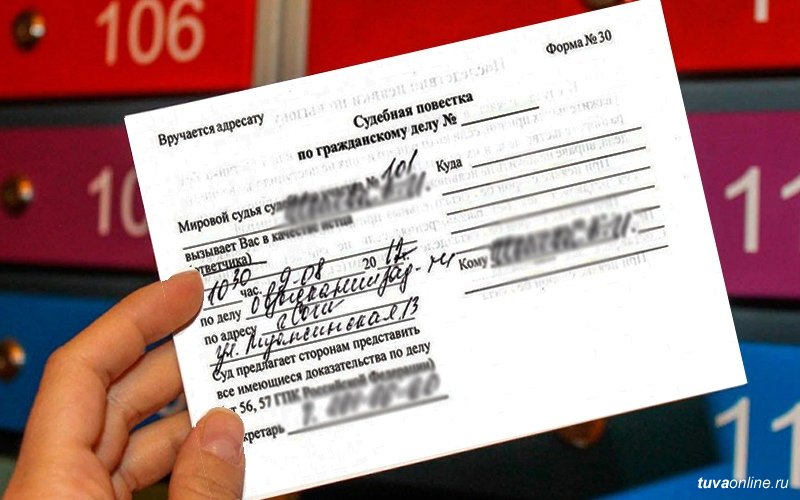 106
Форма № 30
Вручается адресату
Судебная повестка
по гражданскому делу №
Мировой судья № 101
вызывает Вас в качестве истца
(ответчика)
10 30 час. 9.08 20 12.
по делу о взыскании зад-ти
по адресу г. Сочи
ул.
13
Суд предлагает сторонам представить
все имеющиеся доказательства по делу
56, 57 ГПК Российской Федерации)
кретарь
Куда
Кому
10
11
11
10
tuvaonline.ru